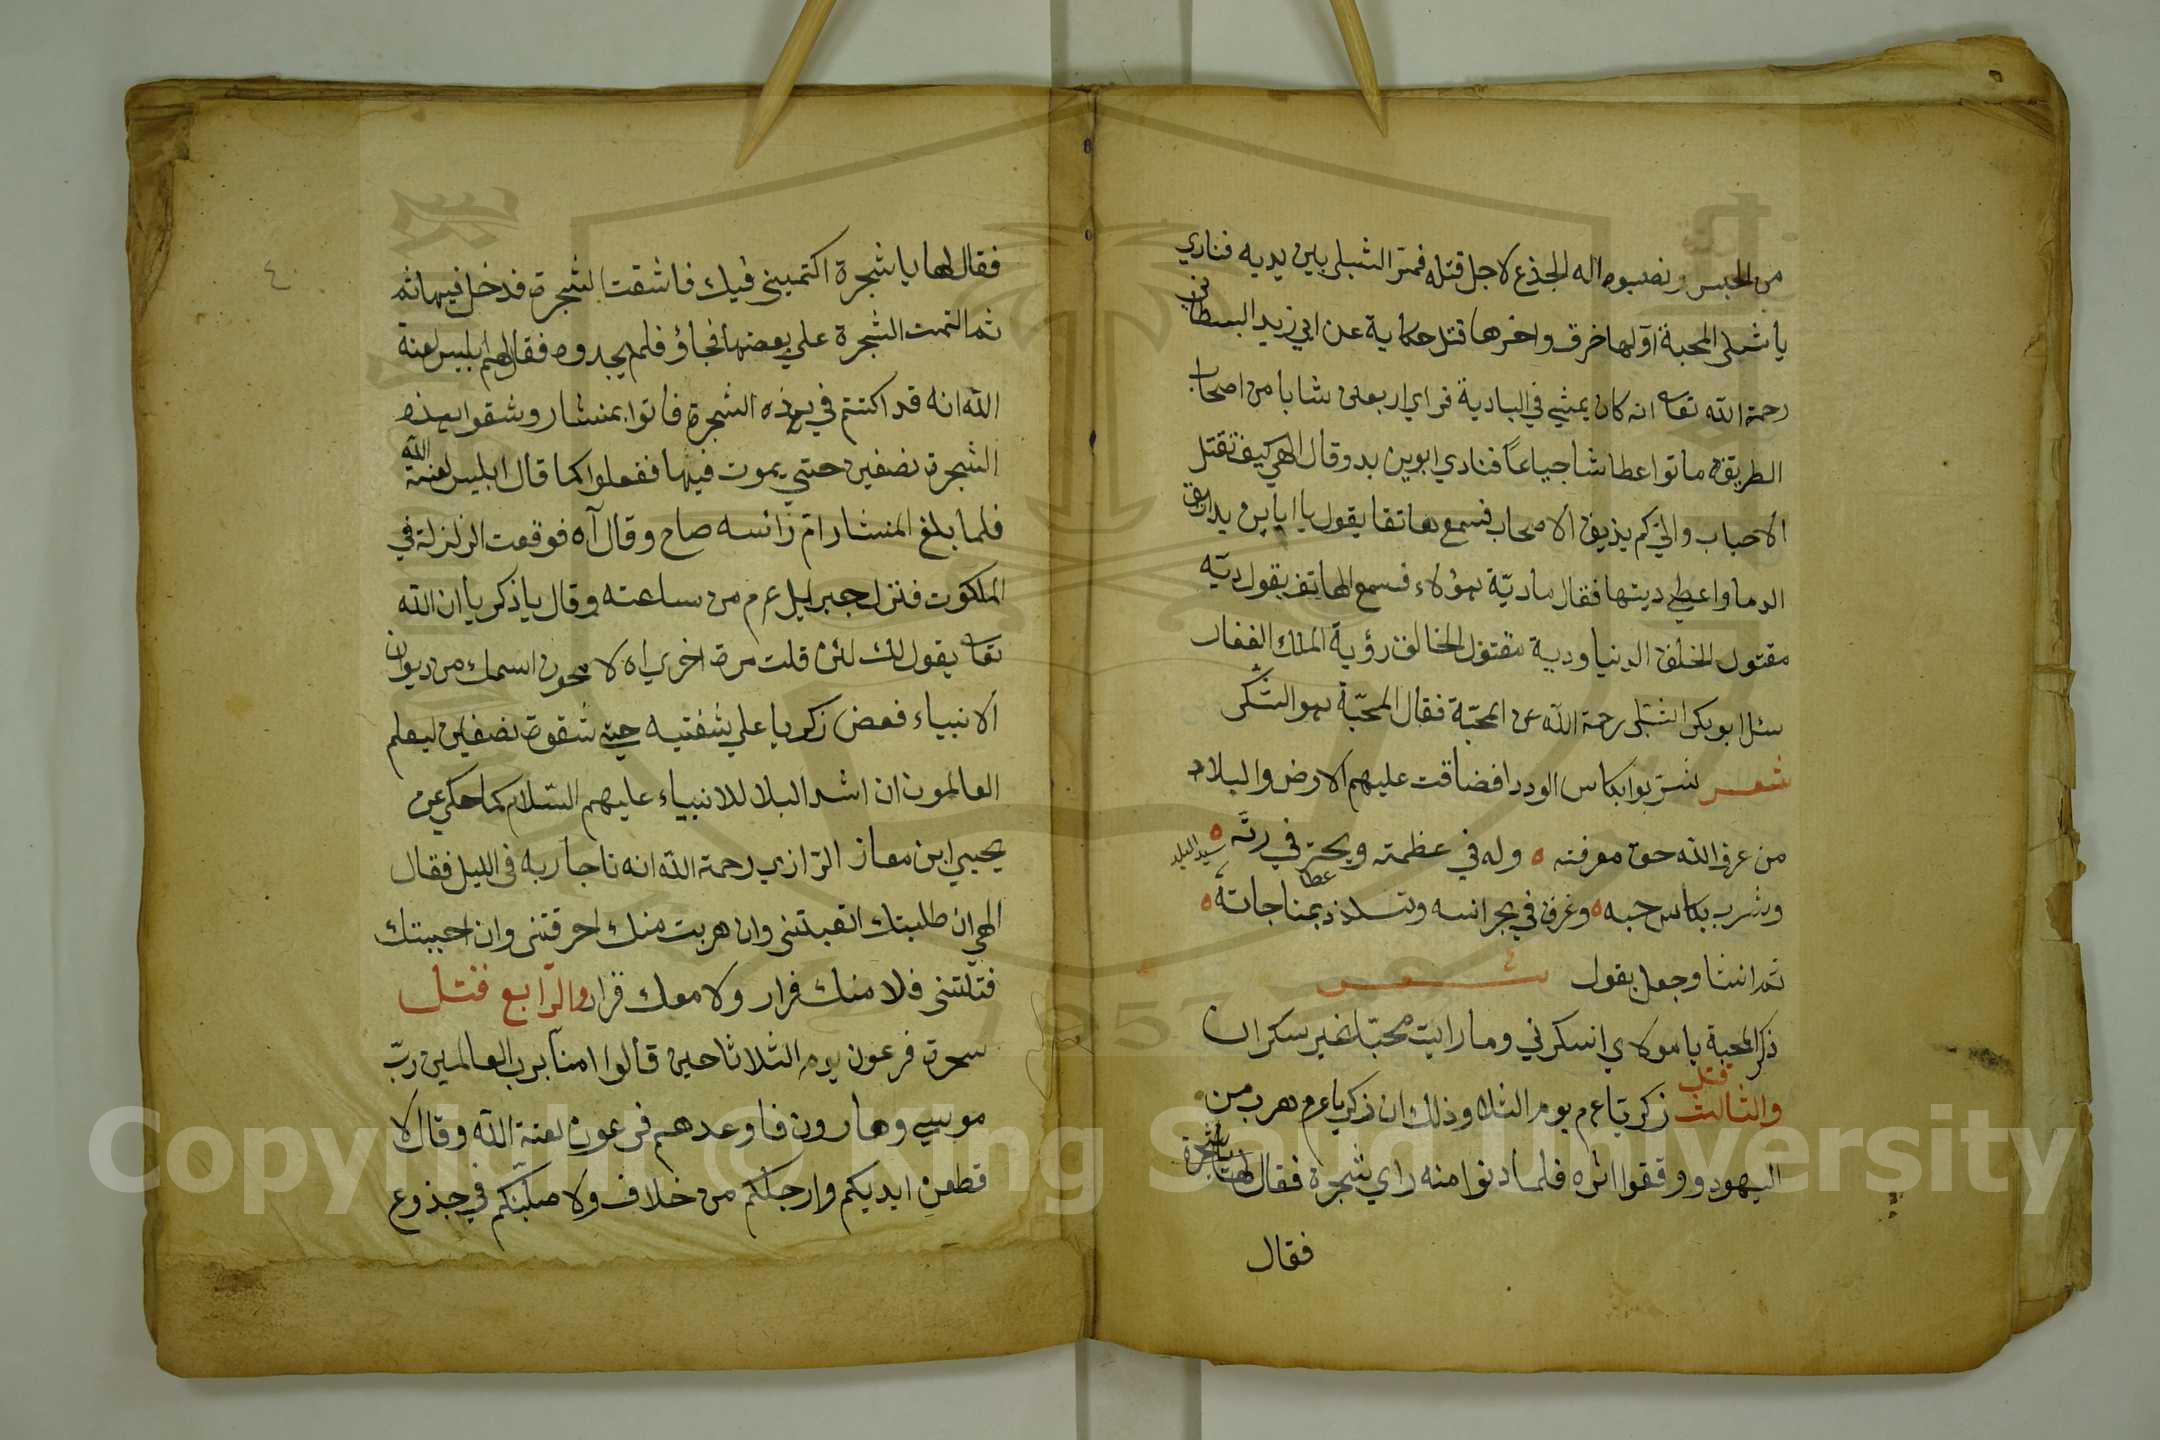 من الحبس ونصبوه اله الجذع لاجل قتله فمتر الشبلى بين يديه فنادي
يا شبلى المحبة اولها خرق واخرها قتل حكاية عن ابي زيد البسطانى
رحمة الله تعا انه كان يمشي في البادية فراي اربعين شابا من اصحاب
الطريقة ماتوا عطاشا جياعاً فنادي ابويزيد وقال الهي كيف تقتل
الاحباب والي كم يذيق الاصحاب فسمع هاتقا يقول يا ابا يزيد اريق
الدما واعطي ديتها فقال ما ديّة هؤلاء فسمع الهاتف يقول ديّه
مقتول الخلق الدنيا ودية مقتول الخالق رؤية الملك الغفار
سئل ابو بكر الشبلى رحمة الله عن المحبّة فقال المحبّة هو الشكى
شعر شربوا بكاس الودد افضاقت عليهم الارض والبلاد
من عرف الله حق معرفته ه وله في عظمته ويحتر في ربّه ه
وشرب بكاس حبه ه وغرق في بحر انسه وتلذذ بمناجاته ه
ثم انشا وجعل يقول شعر
ذكر المحبة يا مولاي اسكرني وما رايت محبّا غير سكران
والثالث قتل زكريّا عم يوم الثلا وذلك ان زكريا عم هرب من
اليهود ووقفوا اثره فلما دنوا منه راي شجرة فقال لها يا شجرة
فقال
٤٠
فقال لها يا شجرة اكتميني فيك فاشقت الشجرة فدخل فيها ثم
ثم التمت الشجرة علي بعضها فجاؤ فلم يجدوه فقال لهم ابليس لعنة
الله انه قد اكتتم في هذه الشجرة فاتوا بمنشار وشقوا بهذه
الشجرة نصفين حتي يموت فيها ففعلوا كما قال ابليس لعنة الله
فلما بلغ المنشار ام زائسه صاح وقال آه فوقعت الزلزلة في
الملكوت فنزل جبريل عرم من ساعته وقال يا ذكريا ان الله
تعا يقول لك لئن قلت مرة اخري اه لا محون اسمك من ديوان
الانبياء فعض زكريا علي شفتيه حتي شقوة نصفين ليعلم
العالمون ان اشد البلا للانبياء عليهم السّلام كما حكي عن
يحيي ابن معاز الرّازي رحمة الله انه ناجا ربه في الليل فقال
الهي ان طلبتك اتعبتنى وان هربت منك احرقتنى وان احببتك
قتلتنى فلا منك فرار ولا معك قرار والرّابع قتل
سحرة فرعون يوم الثلاثا حين قالوا امنّا برب العالمين ربّ
موسي وهارون فاوعدهم فرعون لعنة الله وقال لا
قطعن ايديكم وارجلكم من خلاف ولاصلبنّكم في جذوع
Copyright © King Saud University
1957